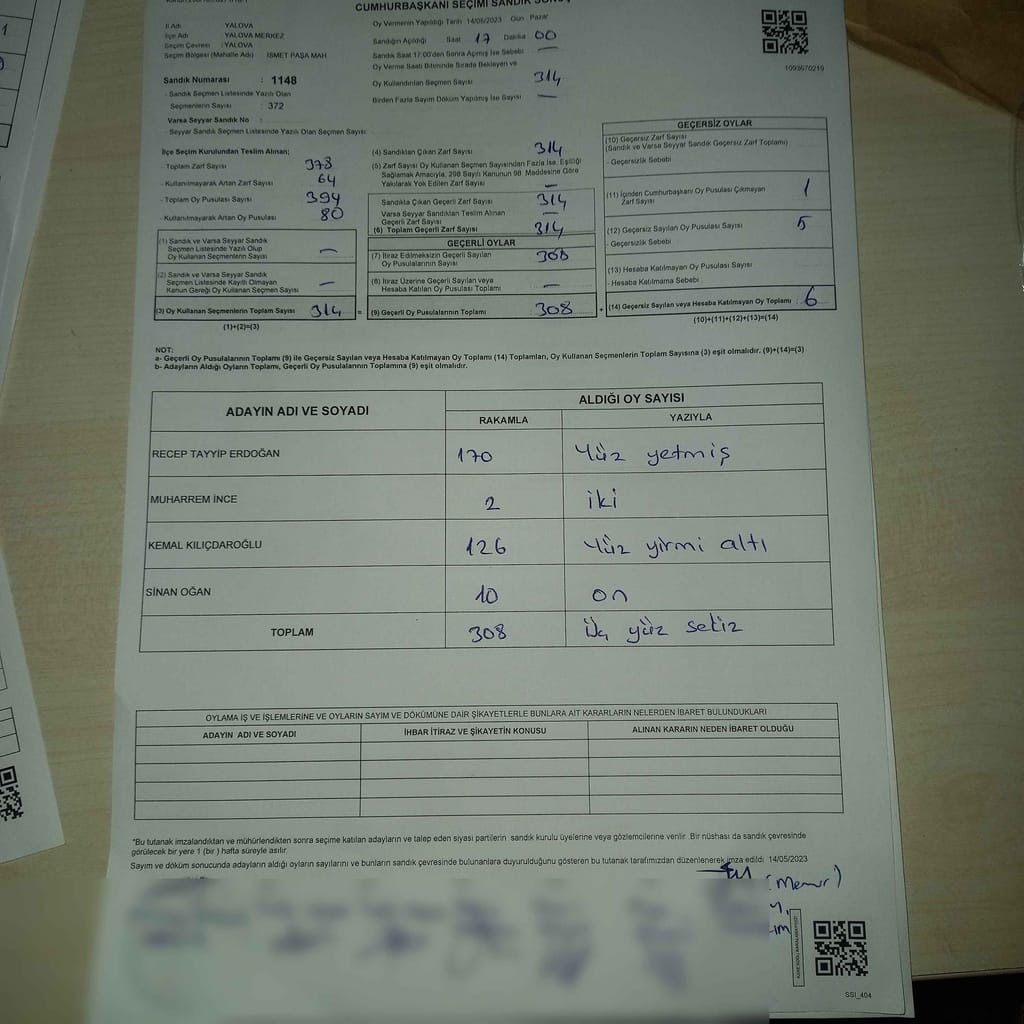 CUMHURBAŞKANI SEÇİMİ SANDIK
İl Adı : YALOVA
İlçe Adı : YALOVA MERKEZ
Seçim Çevresi : YALOVA
Seçim Bölgesi (Mahalle Adı) : İSMET PAŞA MAH
Sandık Numarası : 1148
- Sandık Seçmen Listesinde Yazılı Olan
Seçmenlerin Sayısı : 372
Varsa Seyyar Sandık No :
- Seyyar Sandık Seçmen Listesinde Yazılı Olan Seçmen Sayısı
Oy Vermenin Yapıldığı Tarih 14/05/2023 Gün Pazar
Sandığın Açıldığı Saat 17 Dakika 00
Sandık Saat 17:00'den Sonra Açmış İse Sebebi —
Oy Verme Saati Bitiminde Sırada Bekleyen ve
Oy Kullandırılan Seçmen Sayısı 314
Birden Fazla Sayım Döküm Yapılmış İse Sayısı —
1093670219
İlçe Seçim Kurulundan Teslim Alınan;
- Toplam Zarf Sayısı 378
- Kullanılmayarak Artan Zarf Sayısı 64
- Toplam Oy Pusulası Sayısı 394
- Kullanılmayarak Artan Oy Pusulası 80
(1) Sandık ve Varsa Seyyar Sandık
Seçmen Listesinde Yazılı Olup
Oy Kullanan Seçmen Sayısı —
(2) Sandık ve Varsa Seyyar Sandık
Seçmen Listesinde Kayıtlı Olmayan
Kanun Gereği Oy Kullanan Seçmen Sayısı —
(3) Oy Kullanan Seçmenlerin Toplam Sayısı 314 =
(1)+(2)=(3)
(4) Sandıktan Çıkan Zarf Sayısı 314
(5) Zarf Sayısı Oy Kullanan Seçmen Sayısından Fazla İse, Eşitliği
Sağlamak Amacıyla, 298 Sayılı Kanunun 98. Maddesine Göre
Yakılarak Yok Edilen Zarf Sayısı —
Sandıkta Çıkan Geçerli Zarf Sayısı 314
Varsa Seyyar Sandıktan Teslim Alınan
Geçerli Zarf Sayısı —
(6) Toplam Geçerli Zarf Sayısı 314
GEÇERLİ OYLAR
(7) İtiraz Edilmeksizin Geçerli Sayılan
Oy Pusulalarının Sayısı 308
(8) İtiraz Üzerine Geçerli Sayılan veya
Hesaba Katılan Oy Pusulası Toplamı —
(9) Geçerli Oy Pusulalarının Toplamı 308 +
GEÇERSİZ OYLAR
(10) Geçersiz Zarf Sayısı
(Sandık ve Varsa Seyyar Sandık Geçersiz Zarf Toplamı)
- Geçersizlik Sebebi
(11) İçinden Cumhurbaşkanı Oy Pusulası Çıkmayan
Zarf Sayısı 1
(12) Geçersiz Sayılan Oy Pusulası Sayısı 5
- Geçersizlik Sebebi
(13) Hesaba Katılmayan Oy Pusulası Sayısı
- Hesaba Katılmama Sebebi
(14) Geçersiz Sayılan veya Hesaba Katılmayan Oy Toplamı : 6
(10)+(11)+(12)+(13)=(14)
NOT:
a- Geçerli Oy Pusulalarının Toplamı (9) ile Geçersiz Sayılan veya Hesaba Katılmayan Oy Toplamı (14) Toplamları, Oy Kullanan Seçmenlerin Toplam Sayısına (3) eşit olmalıdır. (9)+(14)=(3)
b- Adayların Aldığı Oyların Toplamı, Geçerli Oy Pusulalarının Toplamına (9) eşit olmalıdır.
ADAYIN ADI VE SOYADI ALDIĞI OY SAYISI
RAKAMLA YAZIYLA
RECEP TAYYİP ERDOĞAN 170 Yüz yetmiş
MUHARREM İNCE 2 iki
KEMAL KILIÇDAROĞLU 126 Yüz yirmi altı
SİNAN OĞAN 10 on
TOPLAM 308 üç yüz sekiz
OYLAMA İŞ VE İŞLEMLERİNE VE OYLARIN SAYIM VE DÖKÜMÜNE DAİR ŞİKAYETLERLE BUNLARA AİT KARARLARIN NELERDEN İBARET BULUNDUKLARI
ADAYIN ADI VE SOYADI İHBAR İTİRAZ VE ŞİKAYETİN KONUSU ALINAN KARARIN NEDEN İBARET OLDUĞU
*Bu tutanak imzalandıktan ve mühürlendikten sonra seçime katılan adayların ve talep eden siyasi partilerin sandık kurulu üyelerine veya gözlemcilerine verilir. Bir nüshası da sandık çevresinde
görülecek bir yere 1 (bir) hafta süreyle asılır.
Sayım ve döküm sonucunda adayların aldığı oyların sayılarını ve bunların sandık çevresinde bulunanlara duyurulduğunu gösteren bu tutanak tarafımızdan düzenlenerek imza edildi. 14/05/2023
(Memur)
SSI_404